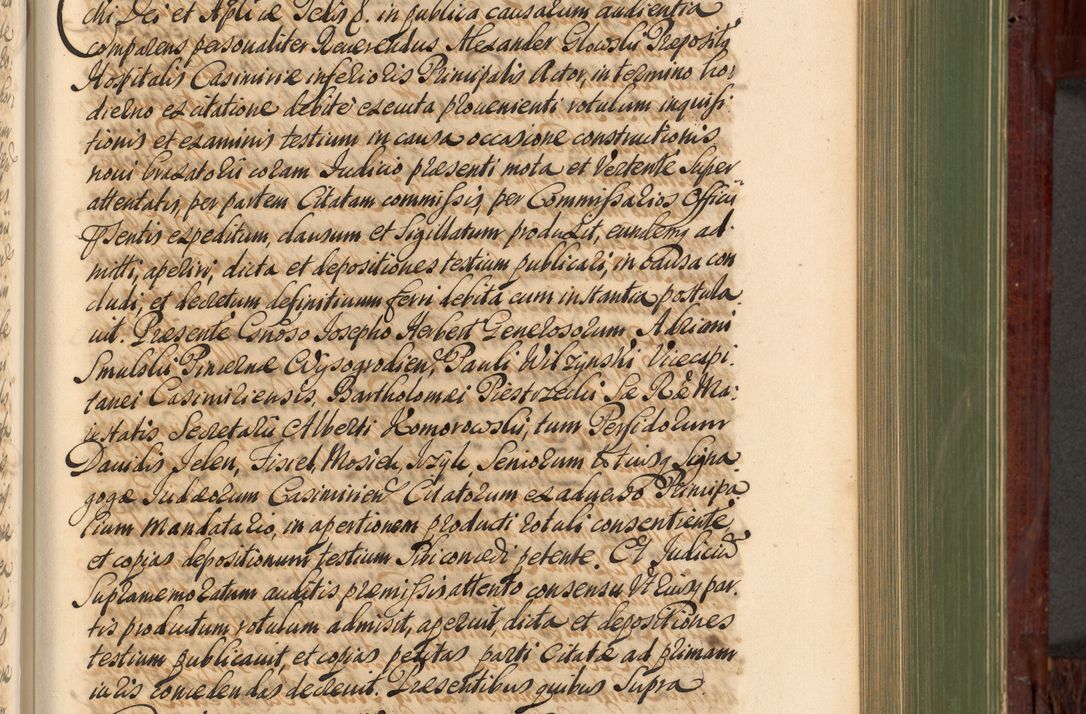 chi Dei et Aplicæ Sedis &. in publica causarum audientia
comparens personaliter Reuerendus Alexander Glowski Præposits
Hospitalis Casimiriæ inferioris Principalis Actor, in termino ho
dierno ex citatione debite executa proueniente rotulum inquisi
tionis et examinis testium in causa occasione constructionis
noui braxatorii coram Judicio præsenti mota et vertente super
attentatis, per partem Citatam commissis, per Commissarios Officii
Pñsentis expeditum, clausum et sigillatum produxit, eundemq ad
mitti, aperiri, dicta et depositiones testium publicari, in causa con
cludi, et decretum definitiuum ferri debita cum instantia postula
uit. Presente Gnôso Josepho Herbert Generosorum Adriani
Smulski Pincernæ Wysogrodien, Pauli Wilzynski Vicecapi
tanei Casimiriensis, Bartholomæi Piestrzecki Sæ Ræ Ma:
iestatis Secretarii Alberti Komorowski, tum Perfidorum
Dauidis Jelen, Fisiel, Mosiek, Ayzyk, Seniorum totiusq Sypna
gogæ Judæorum Casimirien Citatorum ex aduerso Principa
lium Mandatario, in apertionem producti rotuli consentiente
et copias depositionum testium sibi concedi petente. Et Judiciũ
supramemoratum auditis præmissis attento consensu Vtriusq par
tis productum rotulum admisit, aperuit, dicta et depositiones
testium publicauit, et copias petitas parti Citatæ ad primam
iuris concedendas decreuit. Præsentibus quibus supra